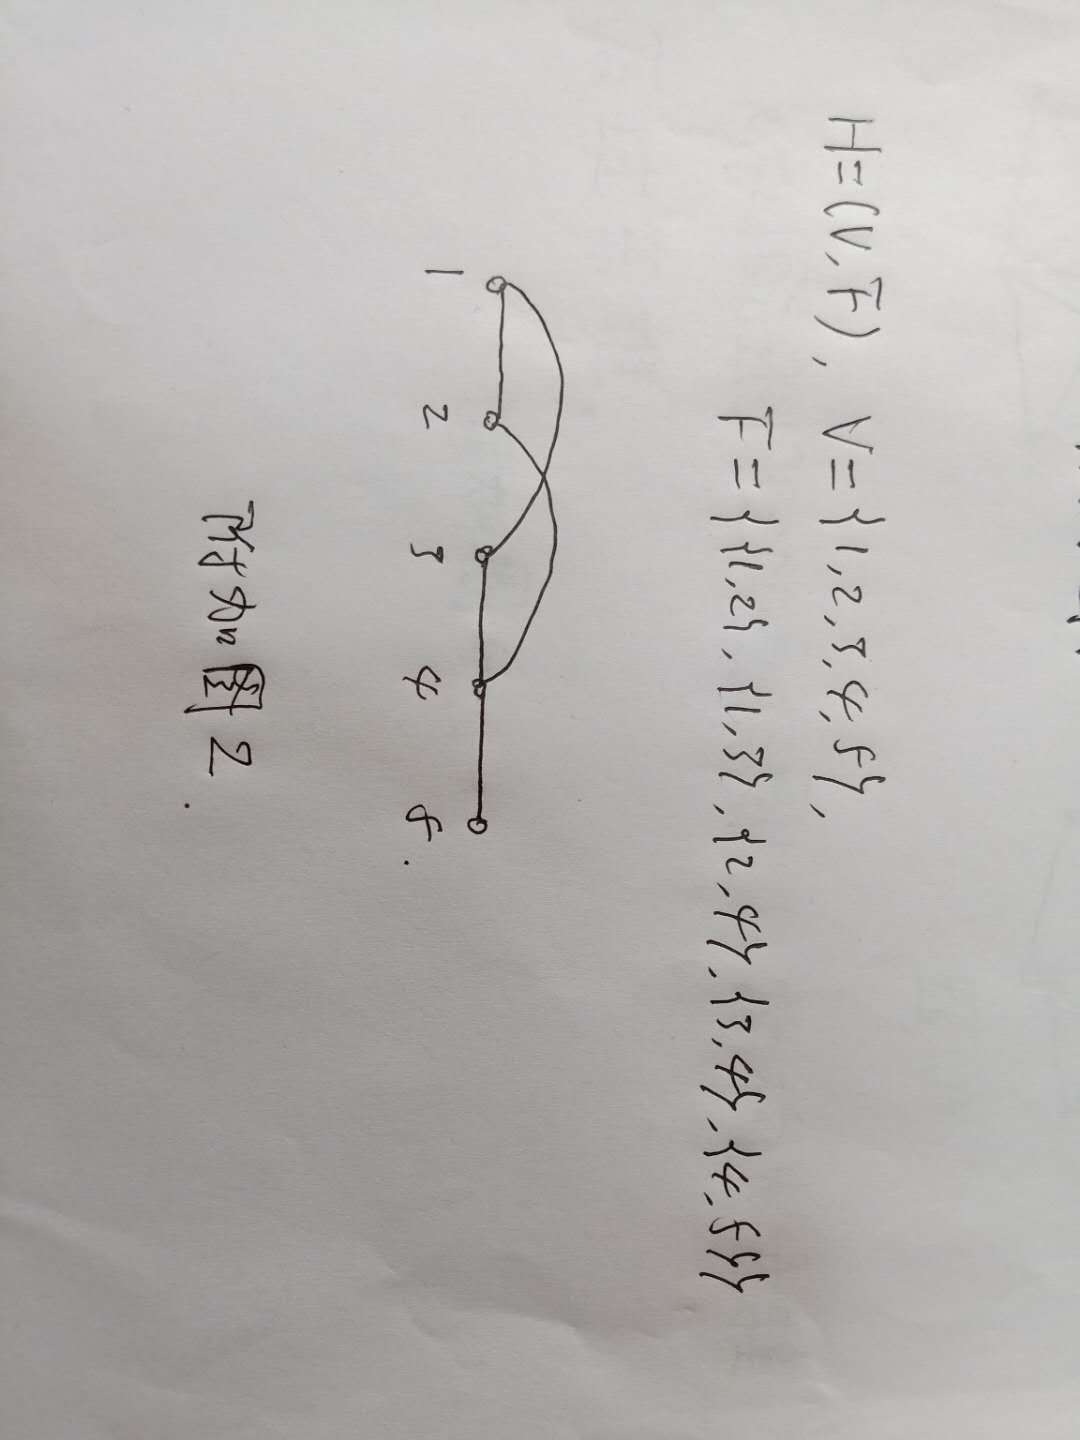 H=(V,F), V={1,2,3,4,5},
F={{1,2},{1,3},{2,4},{3,4},{4,5}}
1 2 3 4 5.
附加图2.